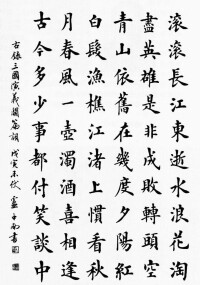 滾滾長江東逝水浪花淘
盡英雄是非成敗轉頭空
青山依舊在幾度夕陽紅
白髮漁樵江渚上慣看秋
月春風一壺濁酒喜相逢
古今多少事都付笑談中
錄三國演義開篇詞 戊寅